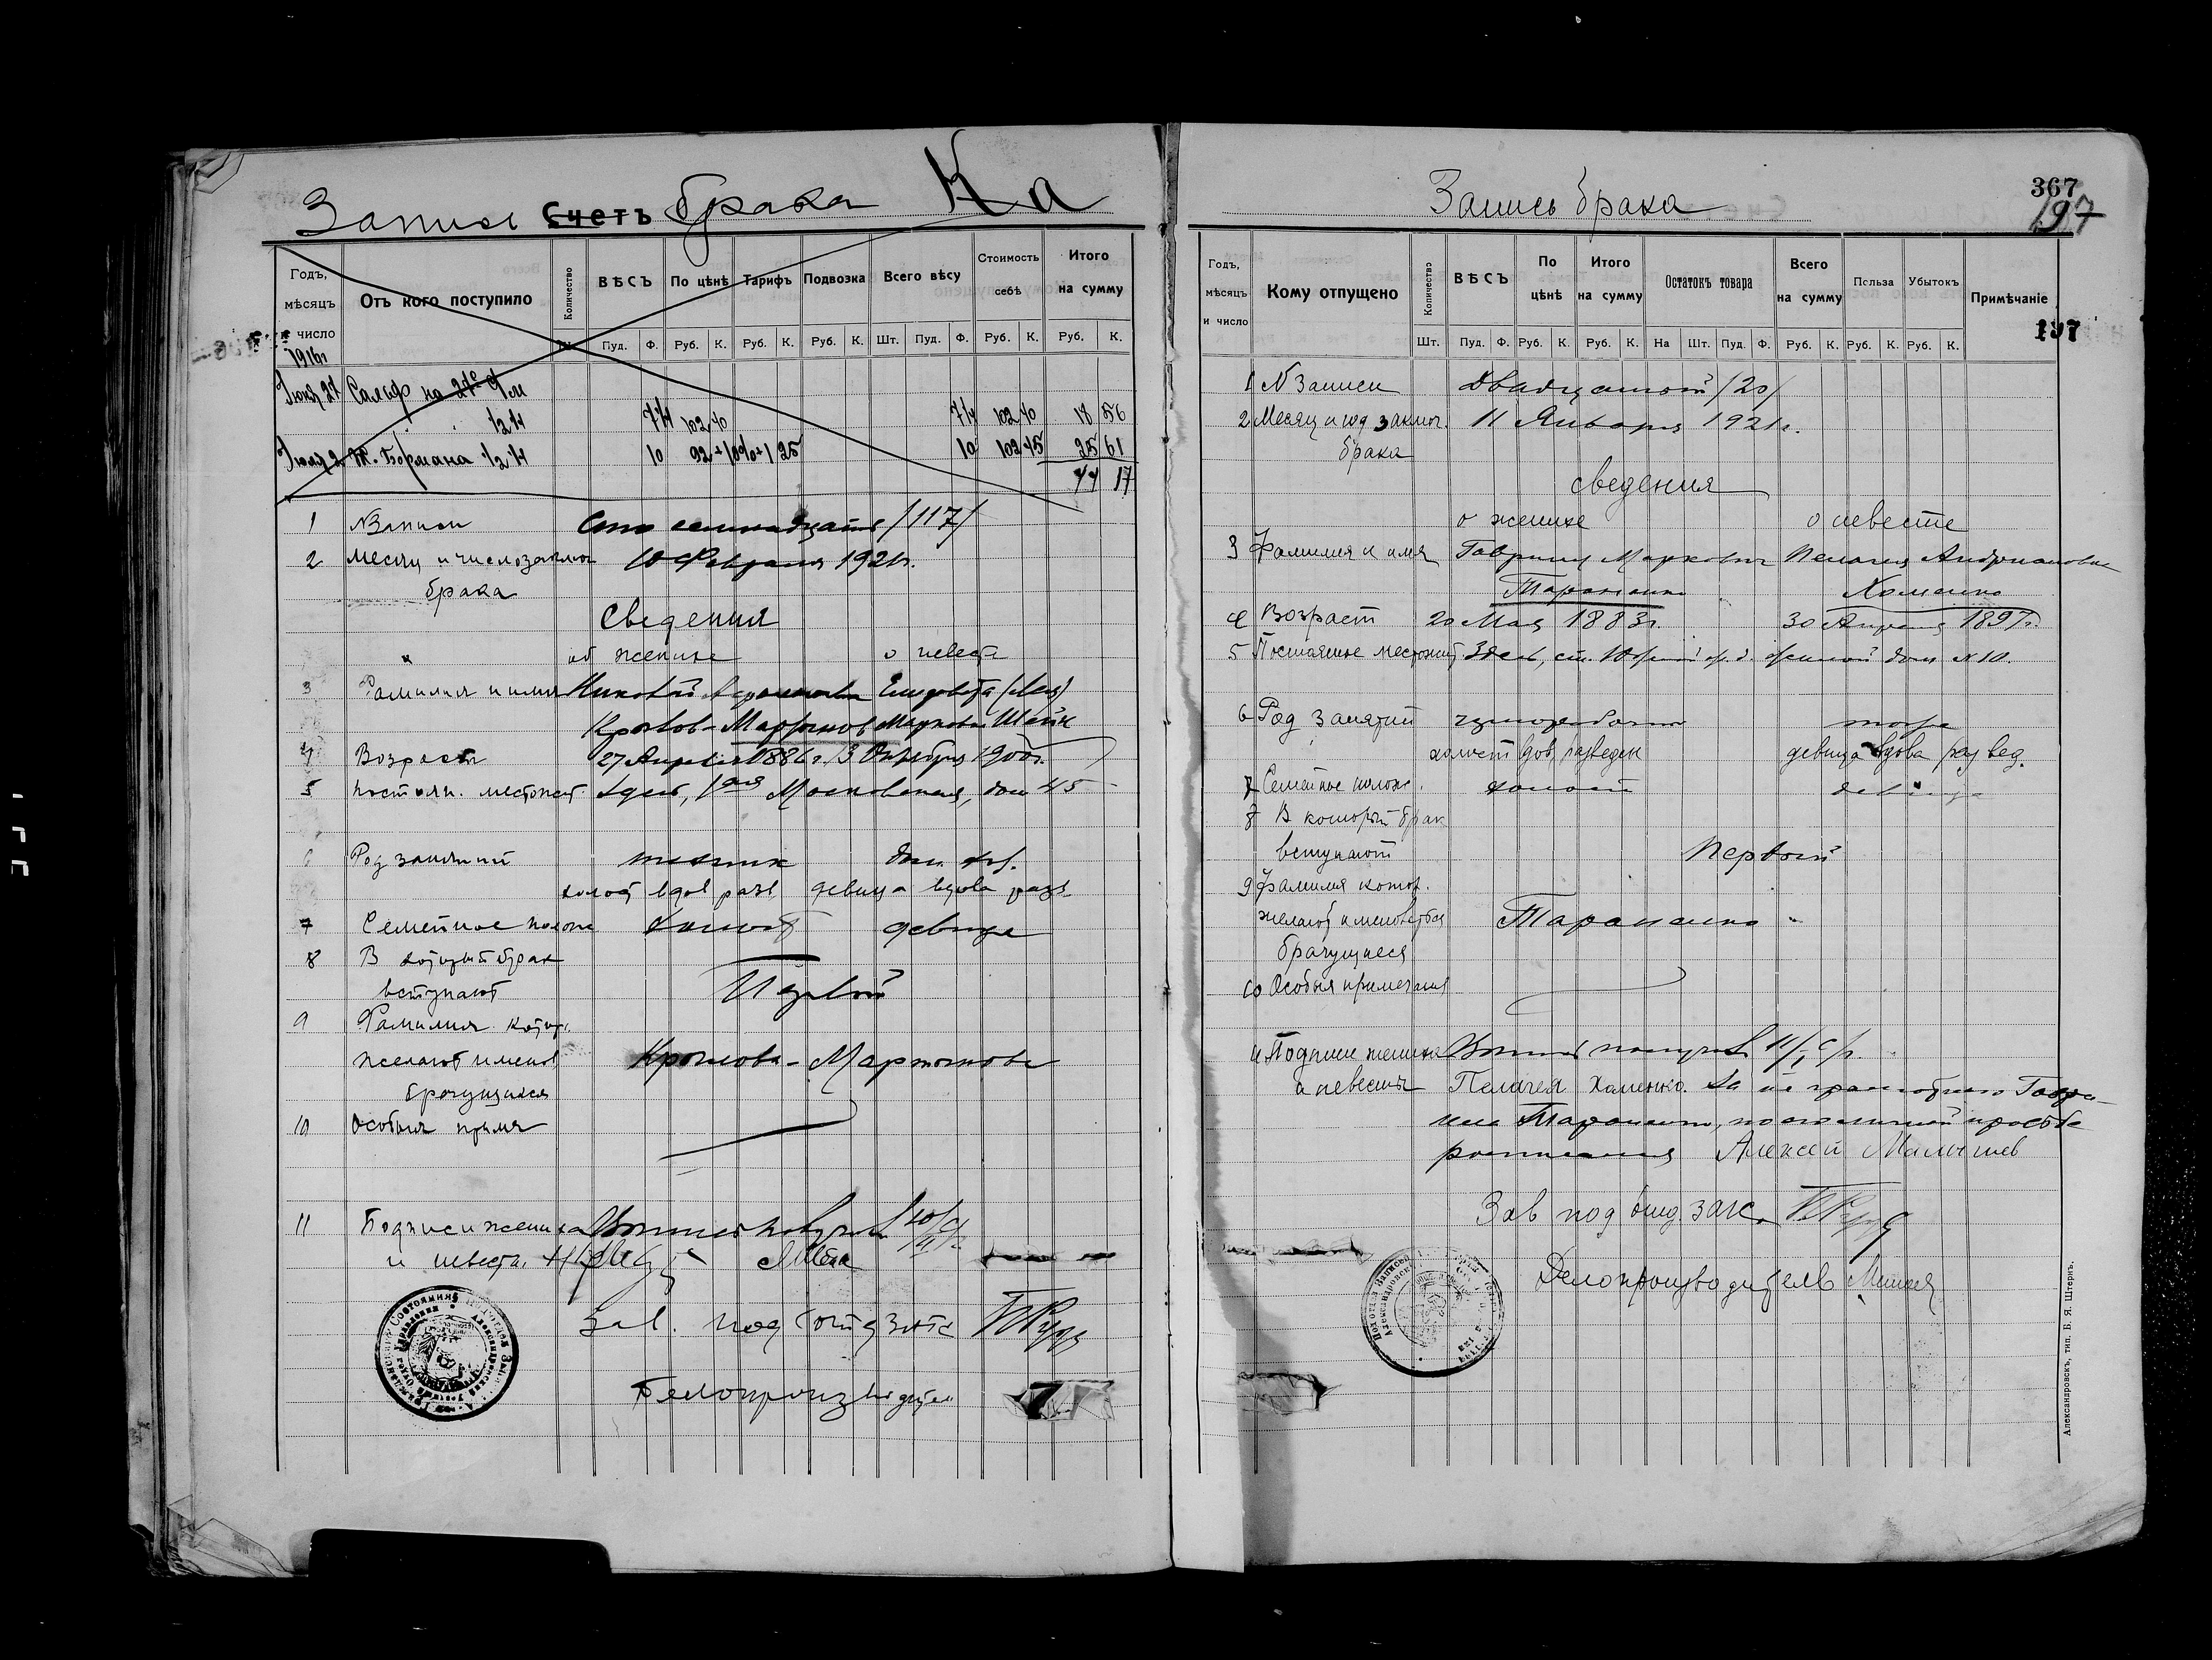 Запись Счетъ брака Ка
Годъ, мѣсяцъ и число
Отъ кого поступило
Количество
ВѢСЪ
По цѣнѣ
Тарифъ
Подвозка
Всего вѣсу
Стоимость себѣ
Итого на сумму
Пуд. Ф. Руб. К. Руб. К. Руб. К. Шт. Пуд. Ф. Руб. К. Руб. К.
1916г
Июня 27
7 14 102 40 7 14 102 40 18 56
Июля 2 Т. Бормана 1/2 14 10 92+10%+1 25 10 102 45 25 61
44 17
1 № Записи Сто семнадцатая /117/
2 Месяц и число заключ 10 Февраля 1921г.
брака
Сведения
об женихе о невесте
3 Фамилия и имя Николай Елизавета (Лея)
Кротов-Мартынов Маркова Шейн
4 Возраст 27 Апреля 1886 г. 13 Октября 1900г.
5 постоян. местожит. Здесь, 1ая Московская, дом 45
6 Род занятий техник дом. хоз.
холост вдов разв девица вдова разв
7 Семейное полож холост девица
8 В который брак
вступают Первый
9 Фамилия котор.
желают именов Кротова-Мартынова
брачущиеся
10 Особыя прим
11 Подписи жениха
и невесты
Зав. под отд загс
Делопроизводитель
367
197
Запись брака
Годъ, мѣсяцъ и число
Кому отпущено
Количество
ВѢСЪ
По цѣнѣ
Итого на сумму
Остатокъ товара
Всего на сумму
Польза
Убытокъ
Примѣчаніе
197
Шт. Пуд. Ф. Руб. К. Руб. К. На Шт. Пуд. Ф. Руб. К. Руб. К. Руб. К.
1 № Записи Двадцатой /20/
2 Месяц и год заключ. 11 Января 1921г.
брака
сведения
о женихе о невесте
3 Фамилия и имя Гавриил Маркович Пелагея Андриановна
Тараненко Хоменко
4 Возраст 20 Мая 1883г. 30 Апреля 1897г.
5 Постоянное местожит. Здесь, ст. Южной ж. д. жилой дом № 10.
6 Род занятий чернорабочий
холост вдов разведен девица вдова развед.
7 Семейное полож. холост девица
8 В который брак
вступают Первый
9 Фамилия котор.
желают именоваться Тараненко
брачущиеся
10 Особыя примечания
11 Подписи жениха
и невесты Пелагея Хоменко. За неграмотного Гаври-
ила Тараненко, по его личной просьбе
росписался Алексей Малышев
Зав под отд загс
Делопроизводитель
Александровскъ, тип. Б. Я. Штернъ.